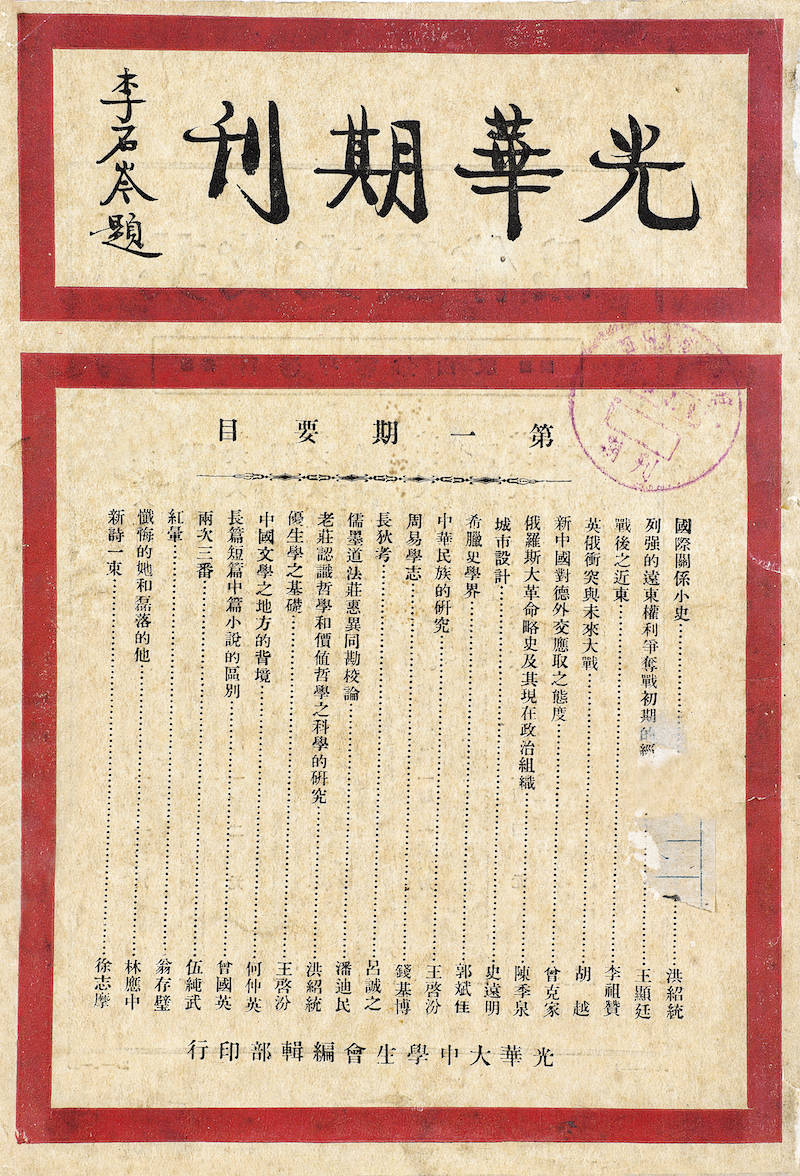 光華期刊
李石岑題
第一期要目
國際關係小史……洪紹統
列强的遠東權利爭奪戰初期的經……王顯廷
戰後之近東……李祖贊
英俄衝突與未來大戰……胡越
新中國對德外交應取之態度……曾克家
俄羅斯大革命略史及其現在政治組織……陳季泉
城市設計……史遠明
希臘史學界……郭斌佳
中華民族的研究……王啓汾
周易學志……錢基博
長狄考……呂誠之
儒墨道法莊惠異同勘校論……潘迪民
老莊認識哲學和價值哲學之科學的研究……洪紹統
優生學之基礎……王啓汾
中國文學之地方的背境……何仲英
長篇短篇中篇小說的區別……曾國英
兩次三番……伍純武
紅暈……翁存璧
懺悔的她和磊落的他……林應中
新詩一束……徐志摩
光華大中學生會編輯部印行
期刊